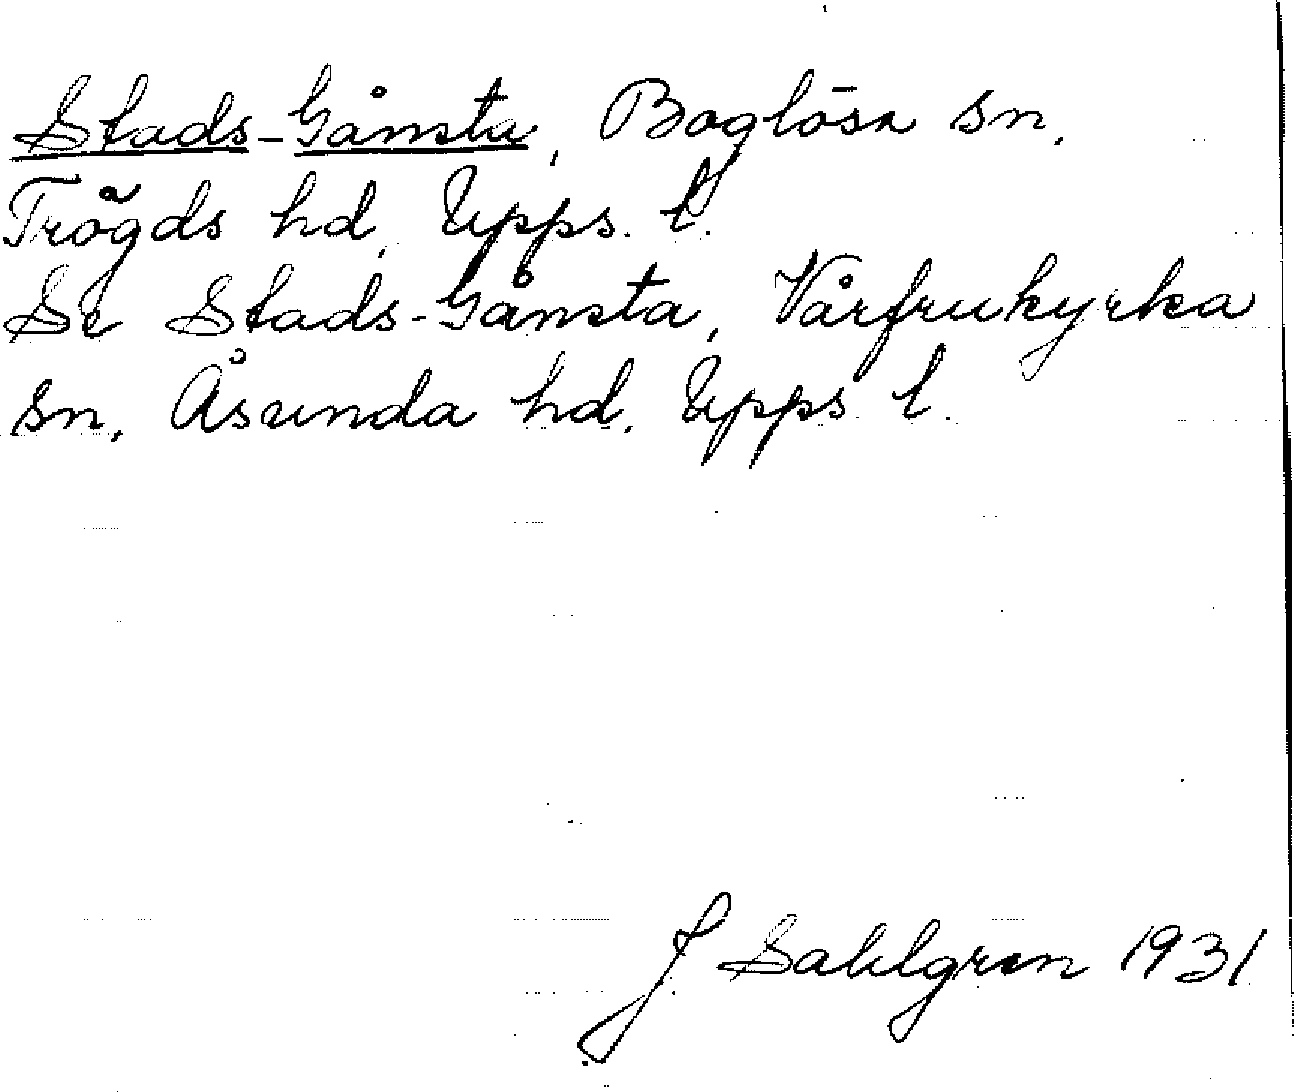 Stads-Gånsta, Boglösa sn,
Trögds hd, Upps. l.
Se Stads-Gånsta, Vårfrukyrka
sn, Åsunda hd, Upps. l.
J. Sahlgren 1931